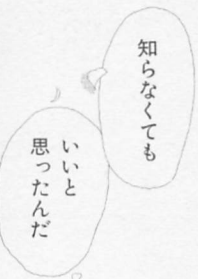 知らなくても
いいと
思ったんだ